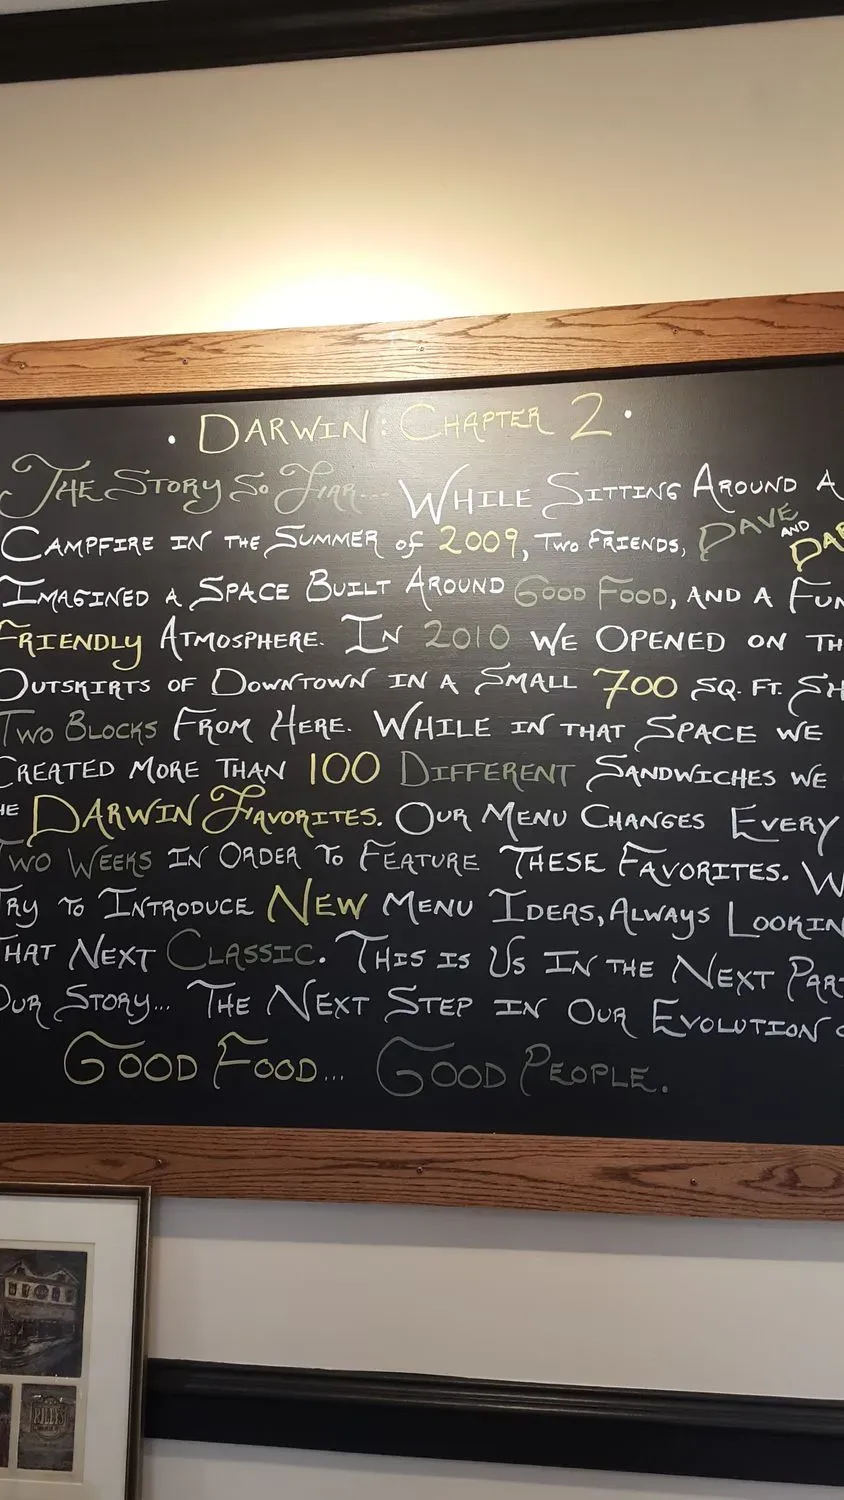 · DARWIN: CHAPTER 2 ·
THE STORY SO FAR... WHILE SITTING AROUND A
CAMPFIRE IN THE SUMMER OF 2009, TWO FRIENDS, DAVE AND DAR
IMAGINED A SPACE BUILT AROUND GOOD FOOD, AND A FUN
FRIENDLY ATMOSPHERE. IN 2010 WE OPENED ON TH
OUTSKIRTS OF DOWNTOWN IN A SMALL 700 SQ. FT. SH
TWO BLOCKS FROM HERE. WHILE IN THAT SPACE WE
CREATED MORE THAN 100 DIFFERENT SANDWICHES WE
HE DARWIN FAVORITES. OUR MENU CHANGES EVERY
TWO WEEKS IN ORDER TO FEATURE THESE FAVORITES. W
TRY TO INTRODUCE NEW MENU IDEAS, ALWAYS LOOKIN
THAT NEXT CLASSIC. THIS IS US IN THE NEXT PAR
OUR STORY... THE NEXT STEP IN OUR EVOLUTION O
GOOD FOOD... GOOD PEOPLE.